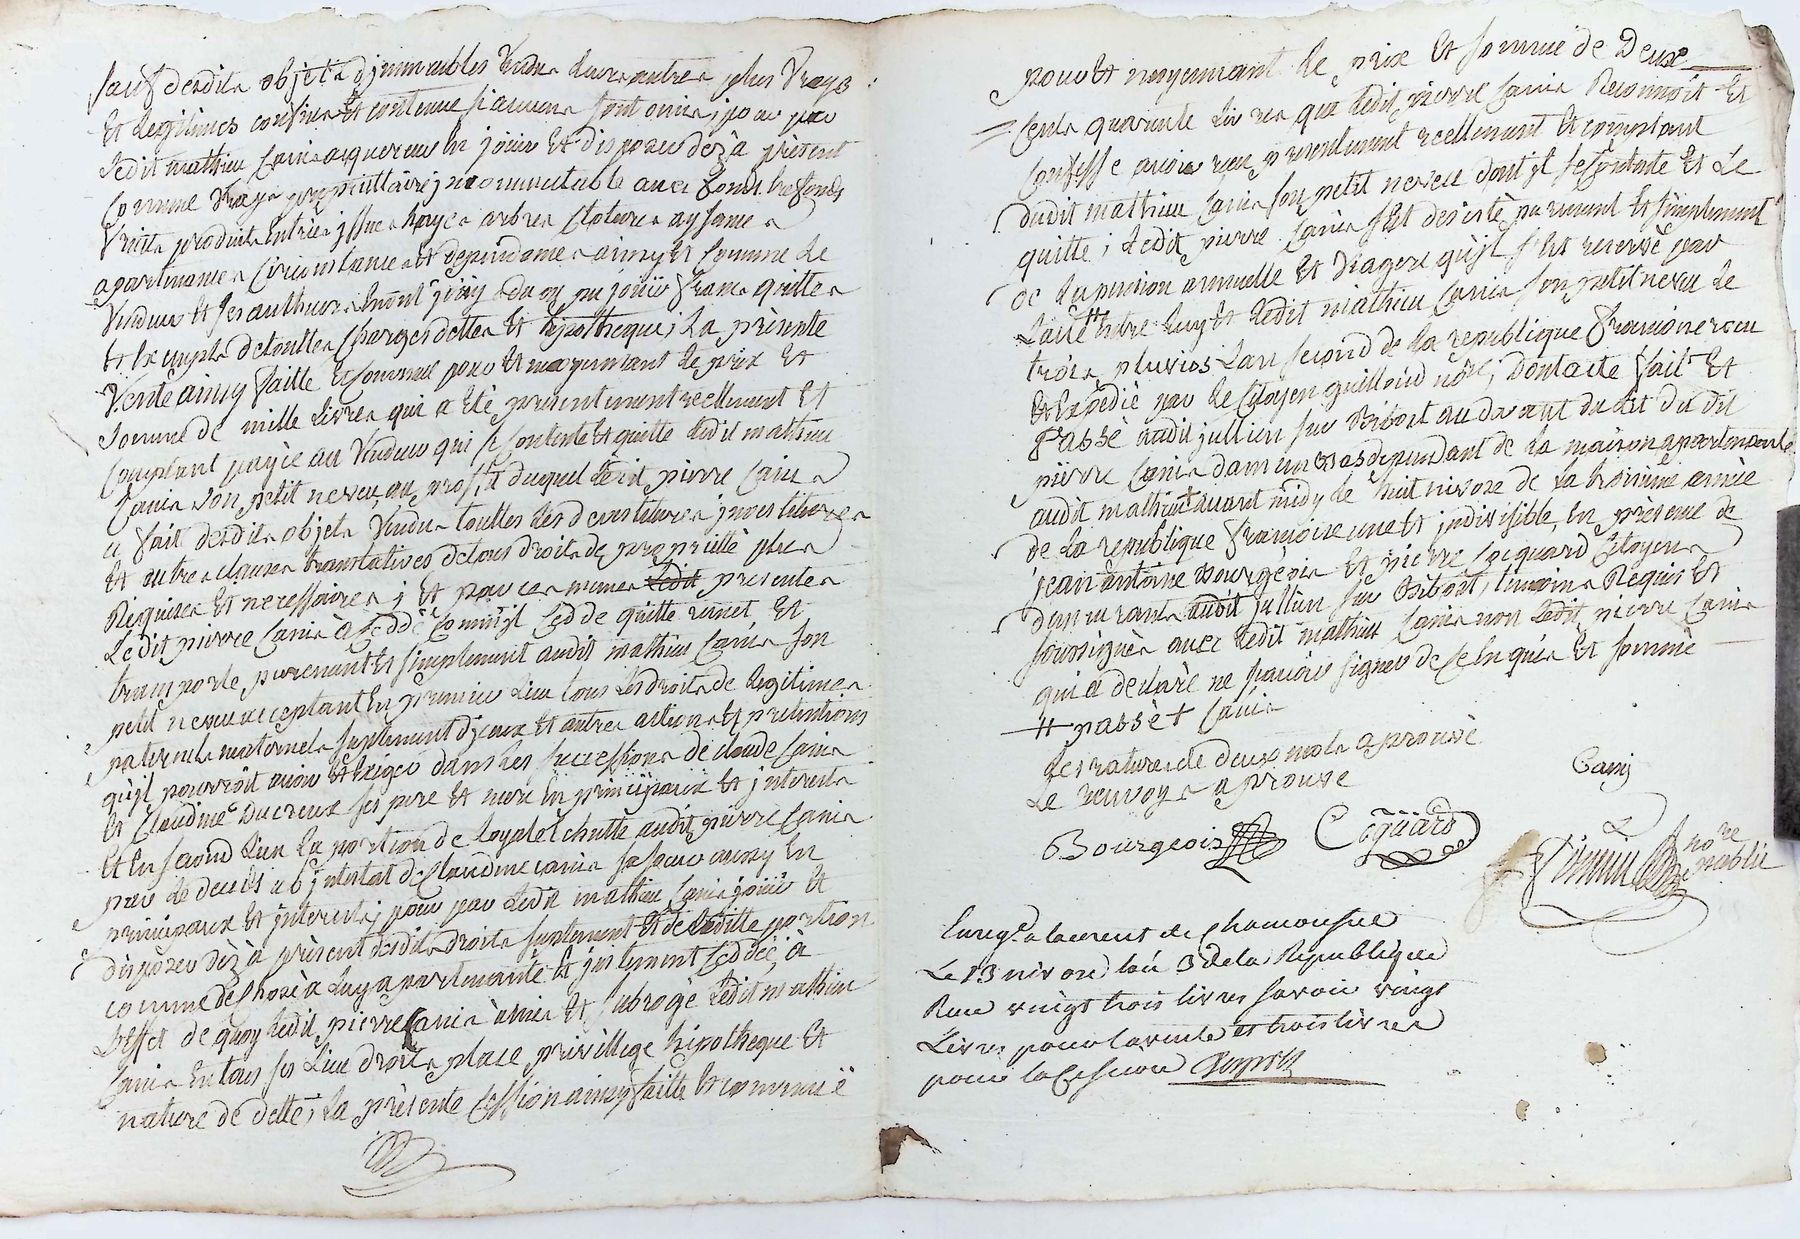 sauf desdits objets dimmeubles vendus leurs autres plus vrays
Et legitimes confins Et contenue si aucuns sont omis, pour par
ledit mathieu Canis acquereur En jouir Et disposer dèz à present
Comme vray propriettaire incommutable avec fonds tresfonds
fruits produits Entrèe issue hayes arbres Clotures aysances
apartenances Circonstances Et dependances ainsy Et Comme le
Vendeur Et ses autheurs En ont jouy du ou pu jouir francs quittes
Et Exempts de touttes Charges dettes Et hypotheques, la prèsente
Vente ainsy faitte Et Convenue pour Et moyennant le prix Et
somme de mille livres qui a Etè presentement reellement Et
Comptant payèe au Vendeur qui se Contente Et quitte ledit mathieu
Canis son petit neveu, au profit duquel ledit pierre Canis
a fait desdits objets Vendus touttes les devestitures investitures
Et autres clauses translatives de tous droits de propriettè plus
Requises Et necessaires; Et par ces memes presentes
Ledit pierre Canis à Ceddè Comm'jl Cedde quitte remet Et
transporte purement Et simplement audit mathieu Canis son
petit neveu acceptant En premier lieu tous les droits de legitimes
paternels maternels suplement d'jceux Et autres actions Et pretentions
qu'jl pourroit avoir Et Exiger dans les successions de claude Canis
Et Claudine Ducreux ses pere Et mere En principaux Et jnterests
Et En second lieu la portion de loyale Echutte audit pierre Canis
par le decèds ab jntestat de Claudine canis sa soeur aussy En
principaux Et jnterests, pour par ledit mathieu Canis jouir Et
disposer dèz à prèsent desdits droits suplement Et de laditte portion
comme de Chose à luy apartenante Et justement Ceddèe, à
L'effet de quoy ledit pierre Canis à mis Et subrogè ledit mathieu
Canis En tous ses lieu droits place privillege hipotheque Et
nature de dette, la prèsente Cession ainsy faitte Et convenuë
pour Et moyennant le prix Et somme de Deux
Cents quarante livres que ledit pierre Canis Reconnoit Et
Confesse avoir reçu presentement reellement Et comptant
dudit mathieu Canis son petit neveu dont jl se Contente Et le
quitte; ledit pierre Canis s'Est desistè purement Et simplement
de la pension annuelle Et Viagere qu'jl s'Est reservè par
L'acte # Entre luy Et ledit mathieu Canis son petit neveu le
trois pluvios L'an second de la republique francoise recu
Et Expèdiè par le Citoyen guilloud nore, Dont acte fait Et
Passè audit jullien sur Bibost au devant du lit du dit
pierre Canis dans un bas dependant de la maison apartenante
audit mathieu + avant midy le huit nivose de la troisième annèe
de la republique francoise une Et jndivisible, En prèsence de
jean antoine Bourgeois Et pierre Coquard Citoyens
demeurants audit jullien sur Bibost, temoins Requis Et
soussignès avec ledit mathieu Canis non ledit pierre Canis
qui a declarè ne savoir signer de ce Enquis Et sommè
# passè + Canis
Les ratures de deux mots aprouvè
Le renvoys aprouve
Canis
Bourgeois Cogüard
nore public
Enregé a laurent de chamousset
Le 13 nivose lan 3 de la Republique
Recu vingt trois livres savoir vingt
Livres pour la vente et trois livres
pour la Cession